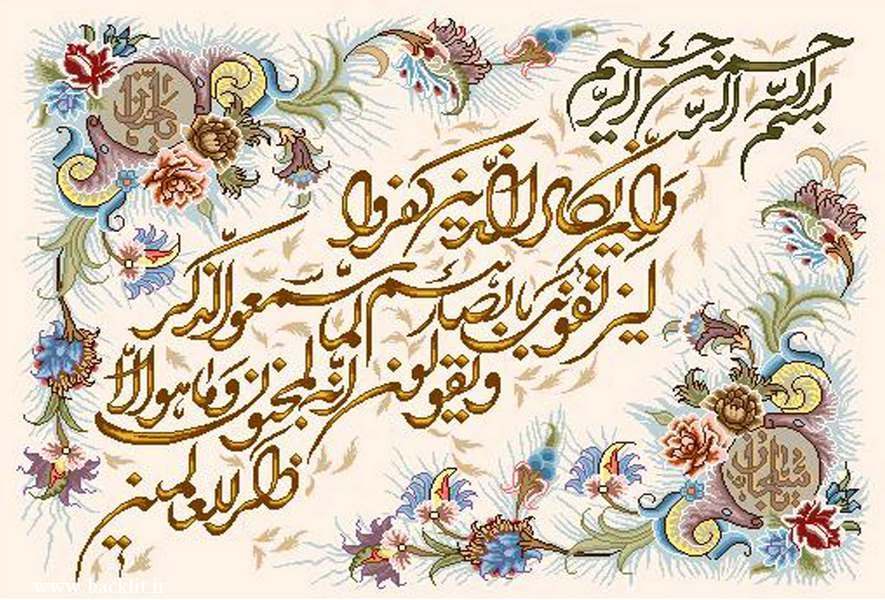 بسم الله الرحمن الرحیم
وان یکاد الذین کفروا
لیزلقونک بابصارهم لما سمعوا الذکر
ویقولون انه لمجنون وما هو الا
ذکر للعالمین